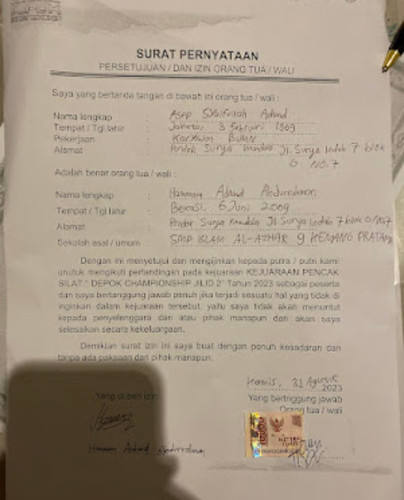 SURAT PERNYATAAN
PERSETUJUAN / DAN IZIN ORANG TUA / WALI
Saya yang bertanda tangan di bawah ini orang tua / wali :
Nama lengkap : Asep
Tempat / Tgl lahir : 3 Februari 1969
Pekerjaan : Karyawan
Alamat : Pondok Surya Mandala Jl. Surya Indah 7 blok
NO.7
Adalah benar orang tua / wali :
Nama lengkap : Hamman Ahmad Abdurrahman
Tempat / Tgl lahir : Bekasi, 6 Juni 2009
Alamat : Pondok Surya Mandala Jl Surya Indah 7 blok
Sekolah asal / umum : SMP ISLAM AL-AZHAR 9 KEMANG PRATAMA
Dengan ini menyetujui dan mengijinkan kepada putra / putri kami
untuk mengikuti pertandingan pada kejuaraan KEJUARAAN PENCAK
SILAT " DEPOK CHAMPIONSHIP JILID 2" Tahun 2023 sebagai peserta
dan saya bertanggung jawab penuh jika terjadi sesuatu hal yang tidak di
inginkan dalam kejuaraan tersebut, yaitu saya tidak akan menuntut
kepada penyelenggara dan atau pihak manapun dan akan saya
selesaikan secara kekeluargaan.
Demikian surat izin ini saya buat dengan penuh kesadaran dan
tanpa ada paksaan dari pihak manapun.
Kamis, 31 Agustus
2023
Yang di beri izin
Yang bertnggung jawab
Orang tua / wali
10000